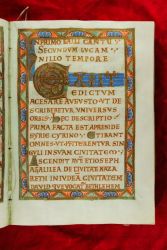 SECUNDUM LUCAM
N ILLO TEMPORE
EDICTUM
A CESARE AUGUSTO UT DE
SCRIBERETUR UNIVERSUS
ORBIS. HEC DESCRIPTIO
PRIMA FACTA EST A PRESIDE
SYRIE CYRINO. ET IBANT
OMNES UT SIN
GULI IN SUAM CIVITATEM
ASCENDIT AUT ET IOSEPH
A GALILEA DE CIVITATE NAZA
RETH IN IUDEA CIVITATEM
DAVID